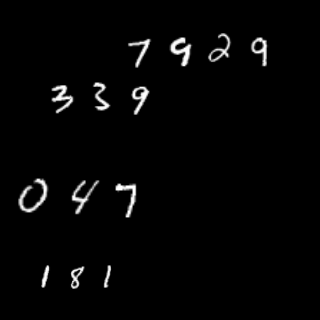 7929
339
047
181